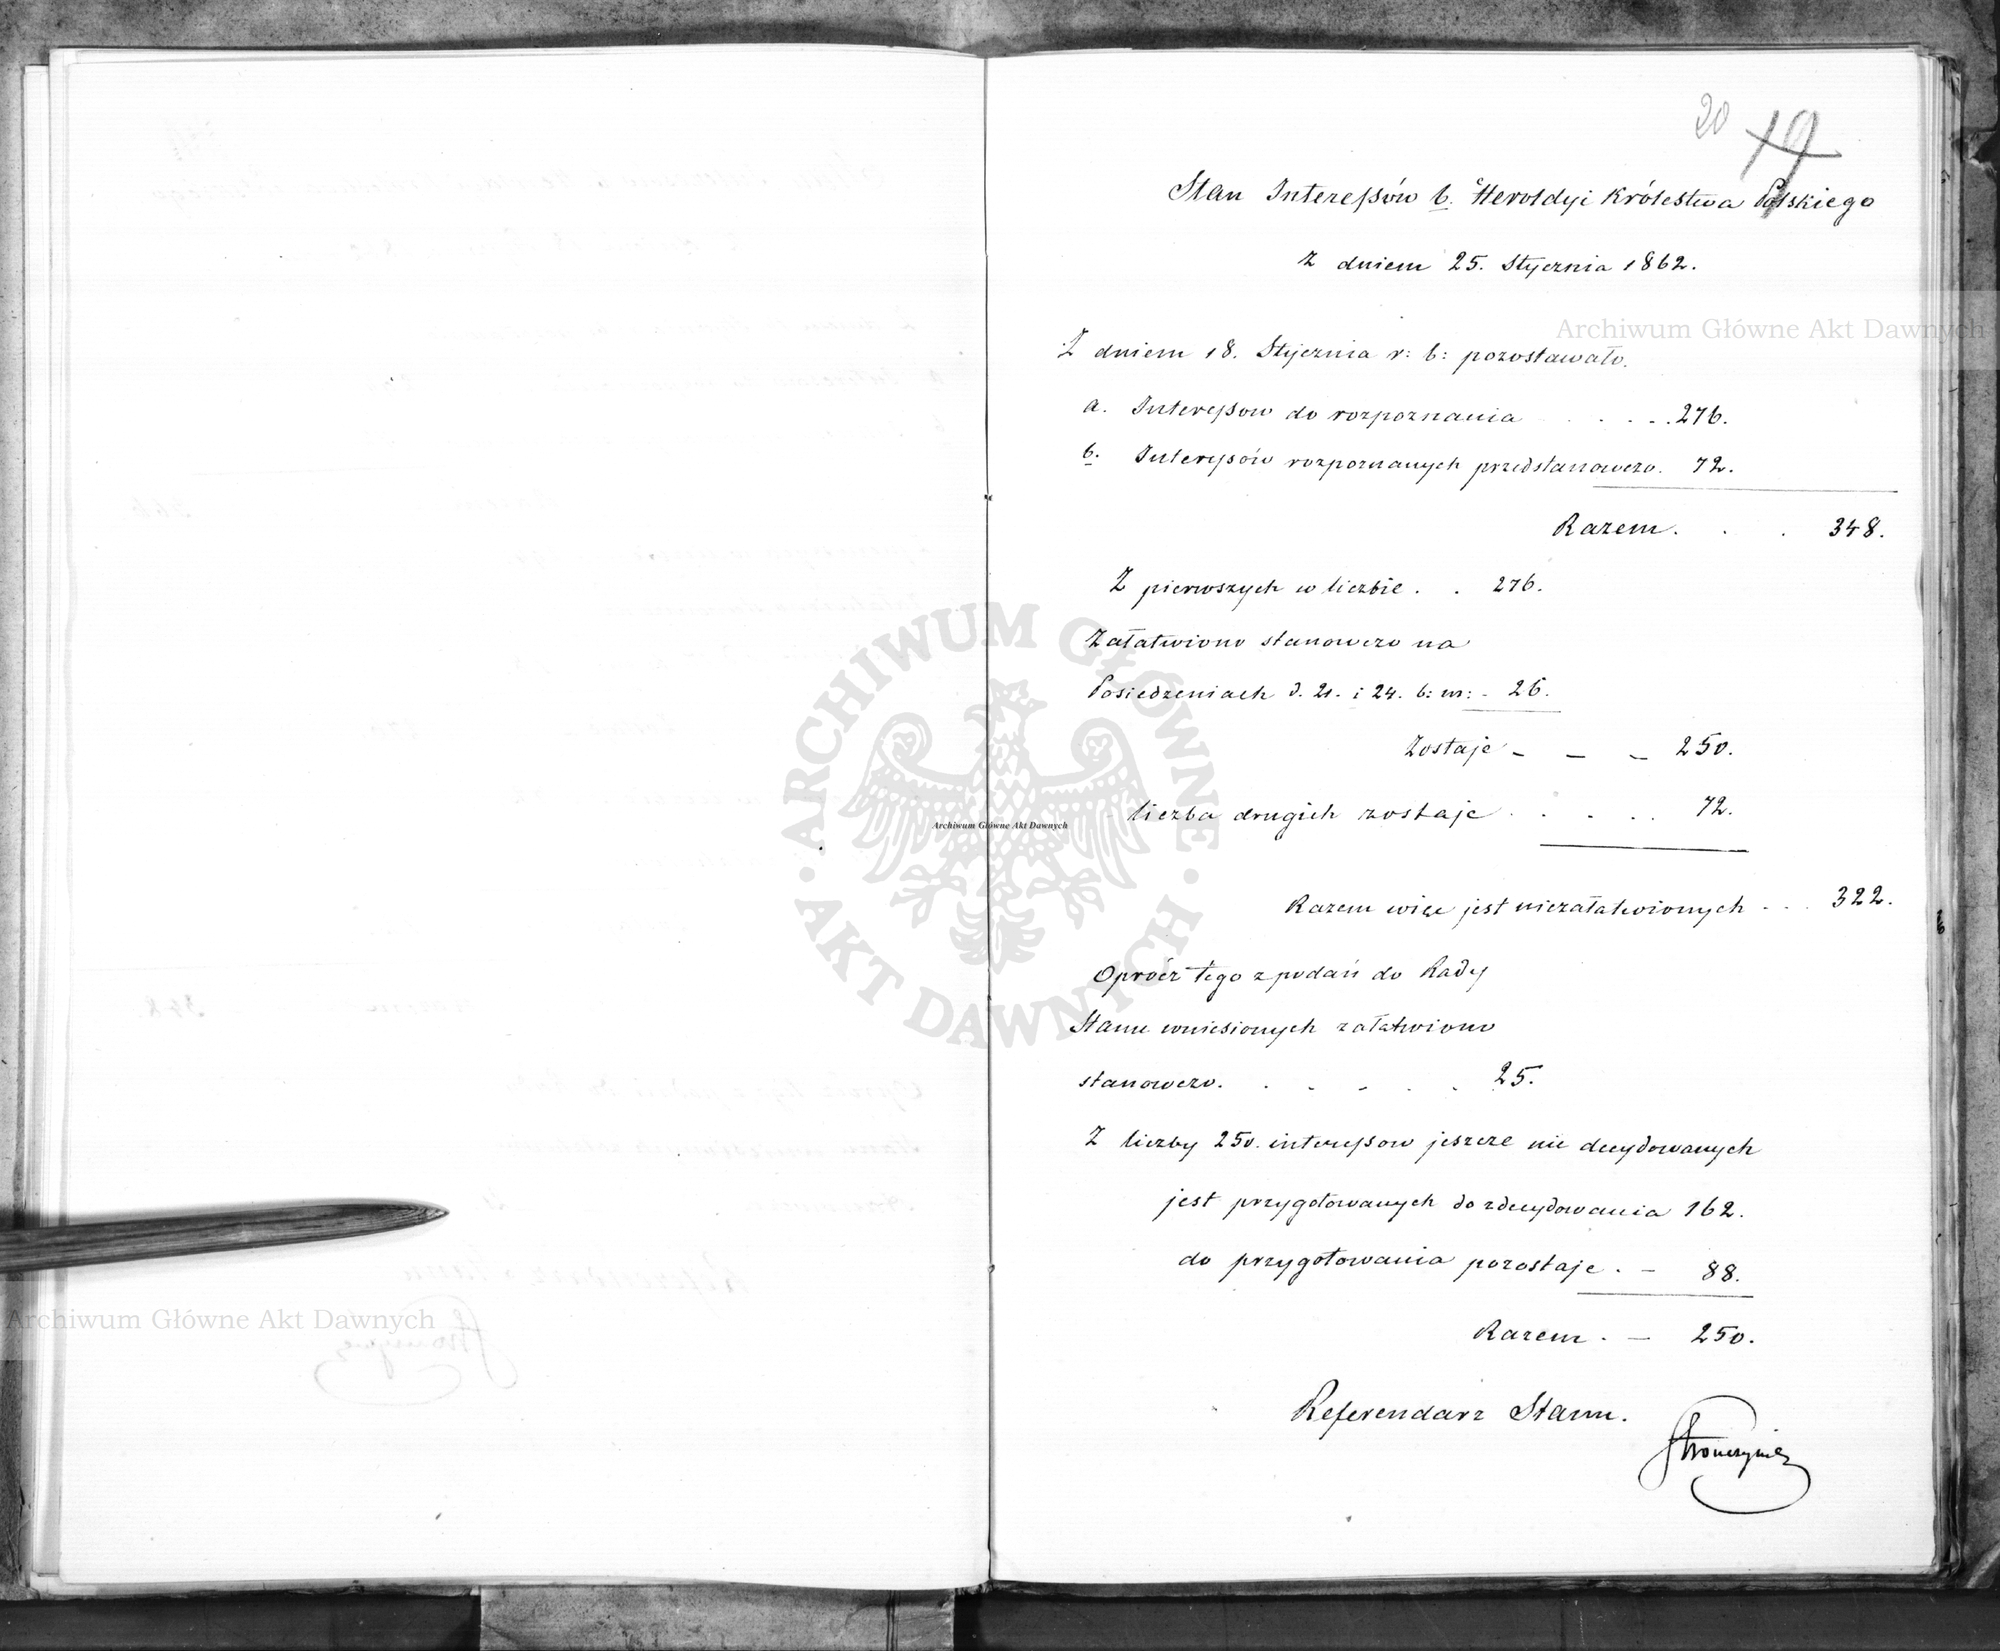 20 19
Stan Interessów b. Heroldyi Królestwa Polskiego
z dniem 25. Stycznia 1862.
Z dniem 18. Stycznia r: b: pozostawało.
a. Interessow do rozpoznania . . . . . 276.
b. Interessów rozpoznanych przedstanowczo. 72.
Razem. . . 348.
Z pierwszych w liczbie . . 276.
Załatwiono stanowczo na
Posiedzeniach d. 21. i 24. b: m: - 26.
Zostaje - - - 250.
liczba drugich zostaje . . . . . 72.
Razem więc jest niezałatwionych . . . 322.
Oprócz tego z podań do Rady
Stanu wniesionych załatwiono
stanowczo. . . - . . 25.
Z liczby 250. interessow jeszcze nie decydowanych
jest przygotowanych do zdecydowania 162.
do przygotowania pozostaje . - 88.
Razem . - 250.
Referendarz Stanu.
Archiwum Główne Akt Dawnych
ARCHIWUM GŁÓWNE · AKT DAWNYCH ·
Archiwum Główne Akt Dawnych
Archiwum Główne Akt Dawnych